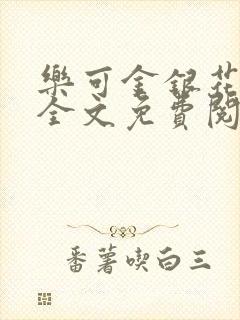 樂可金銀花
全文免費閱
番薯喫白三